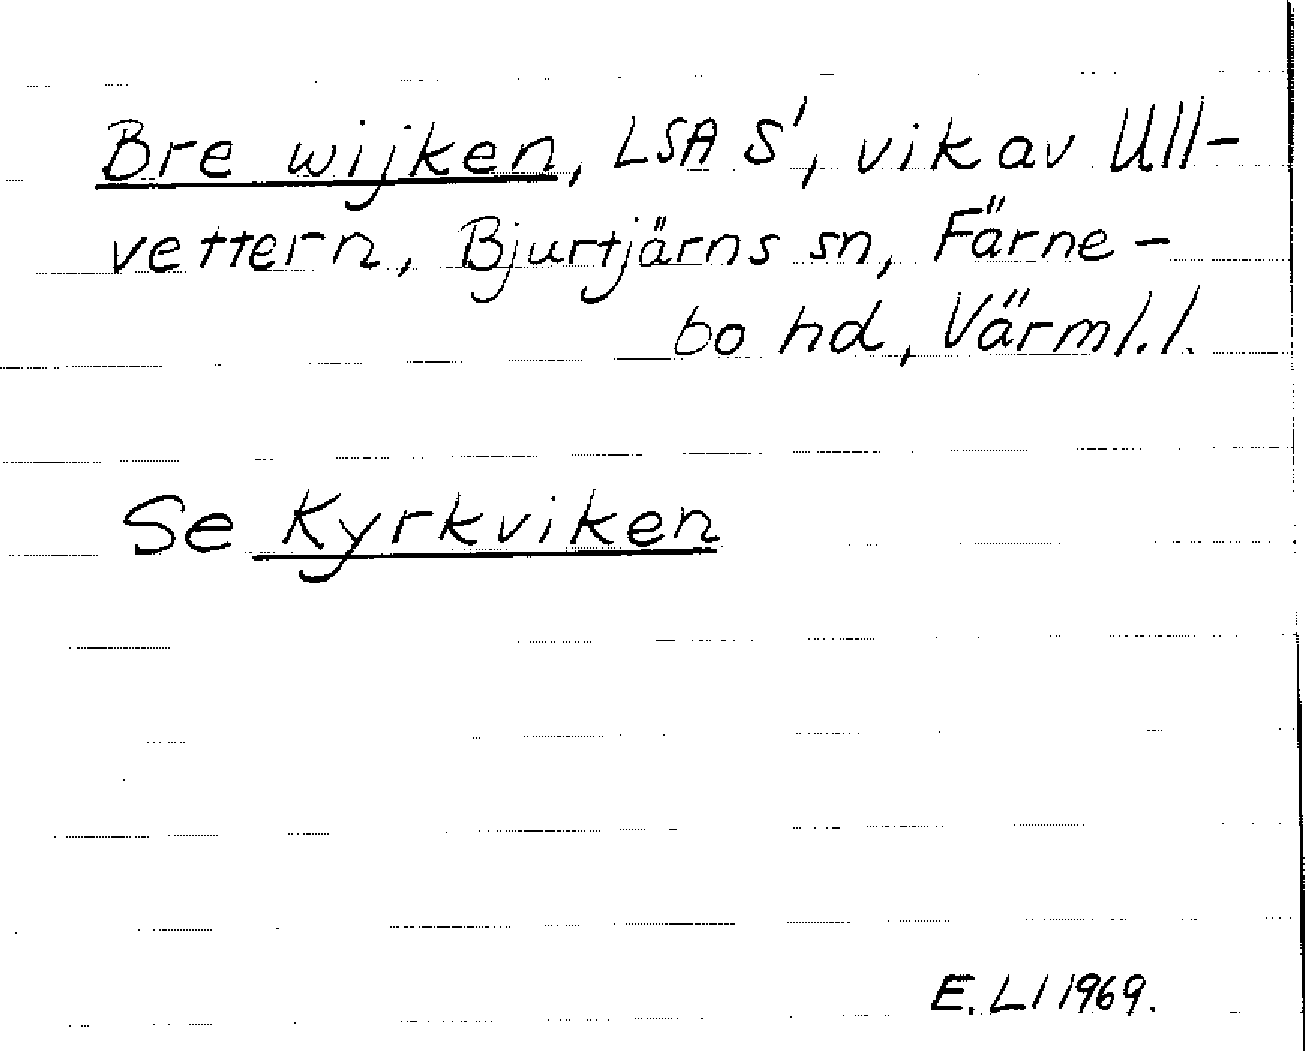 Bre wijken, LSA S', vik av Ull-
vettern, Bjurtjärns sn, Färne-
bo hd, Värml. l.
Se Kyrkviken
E. Ll 1969.